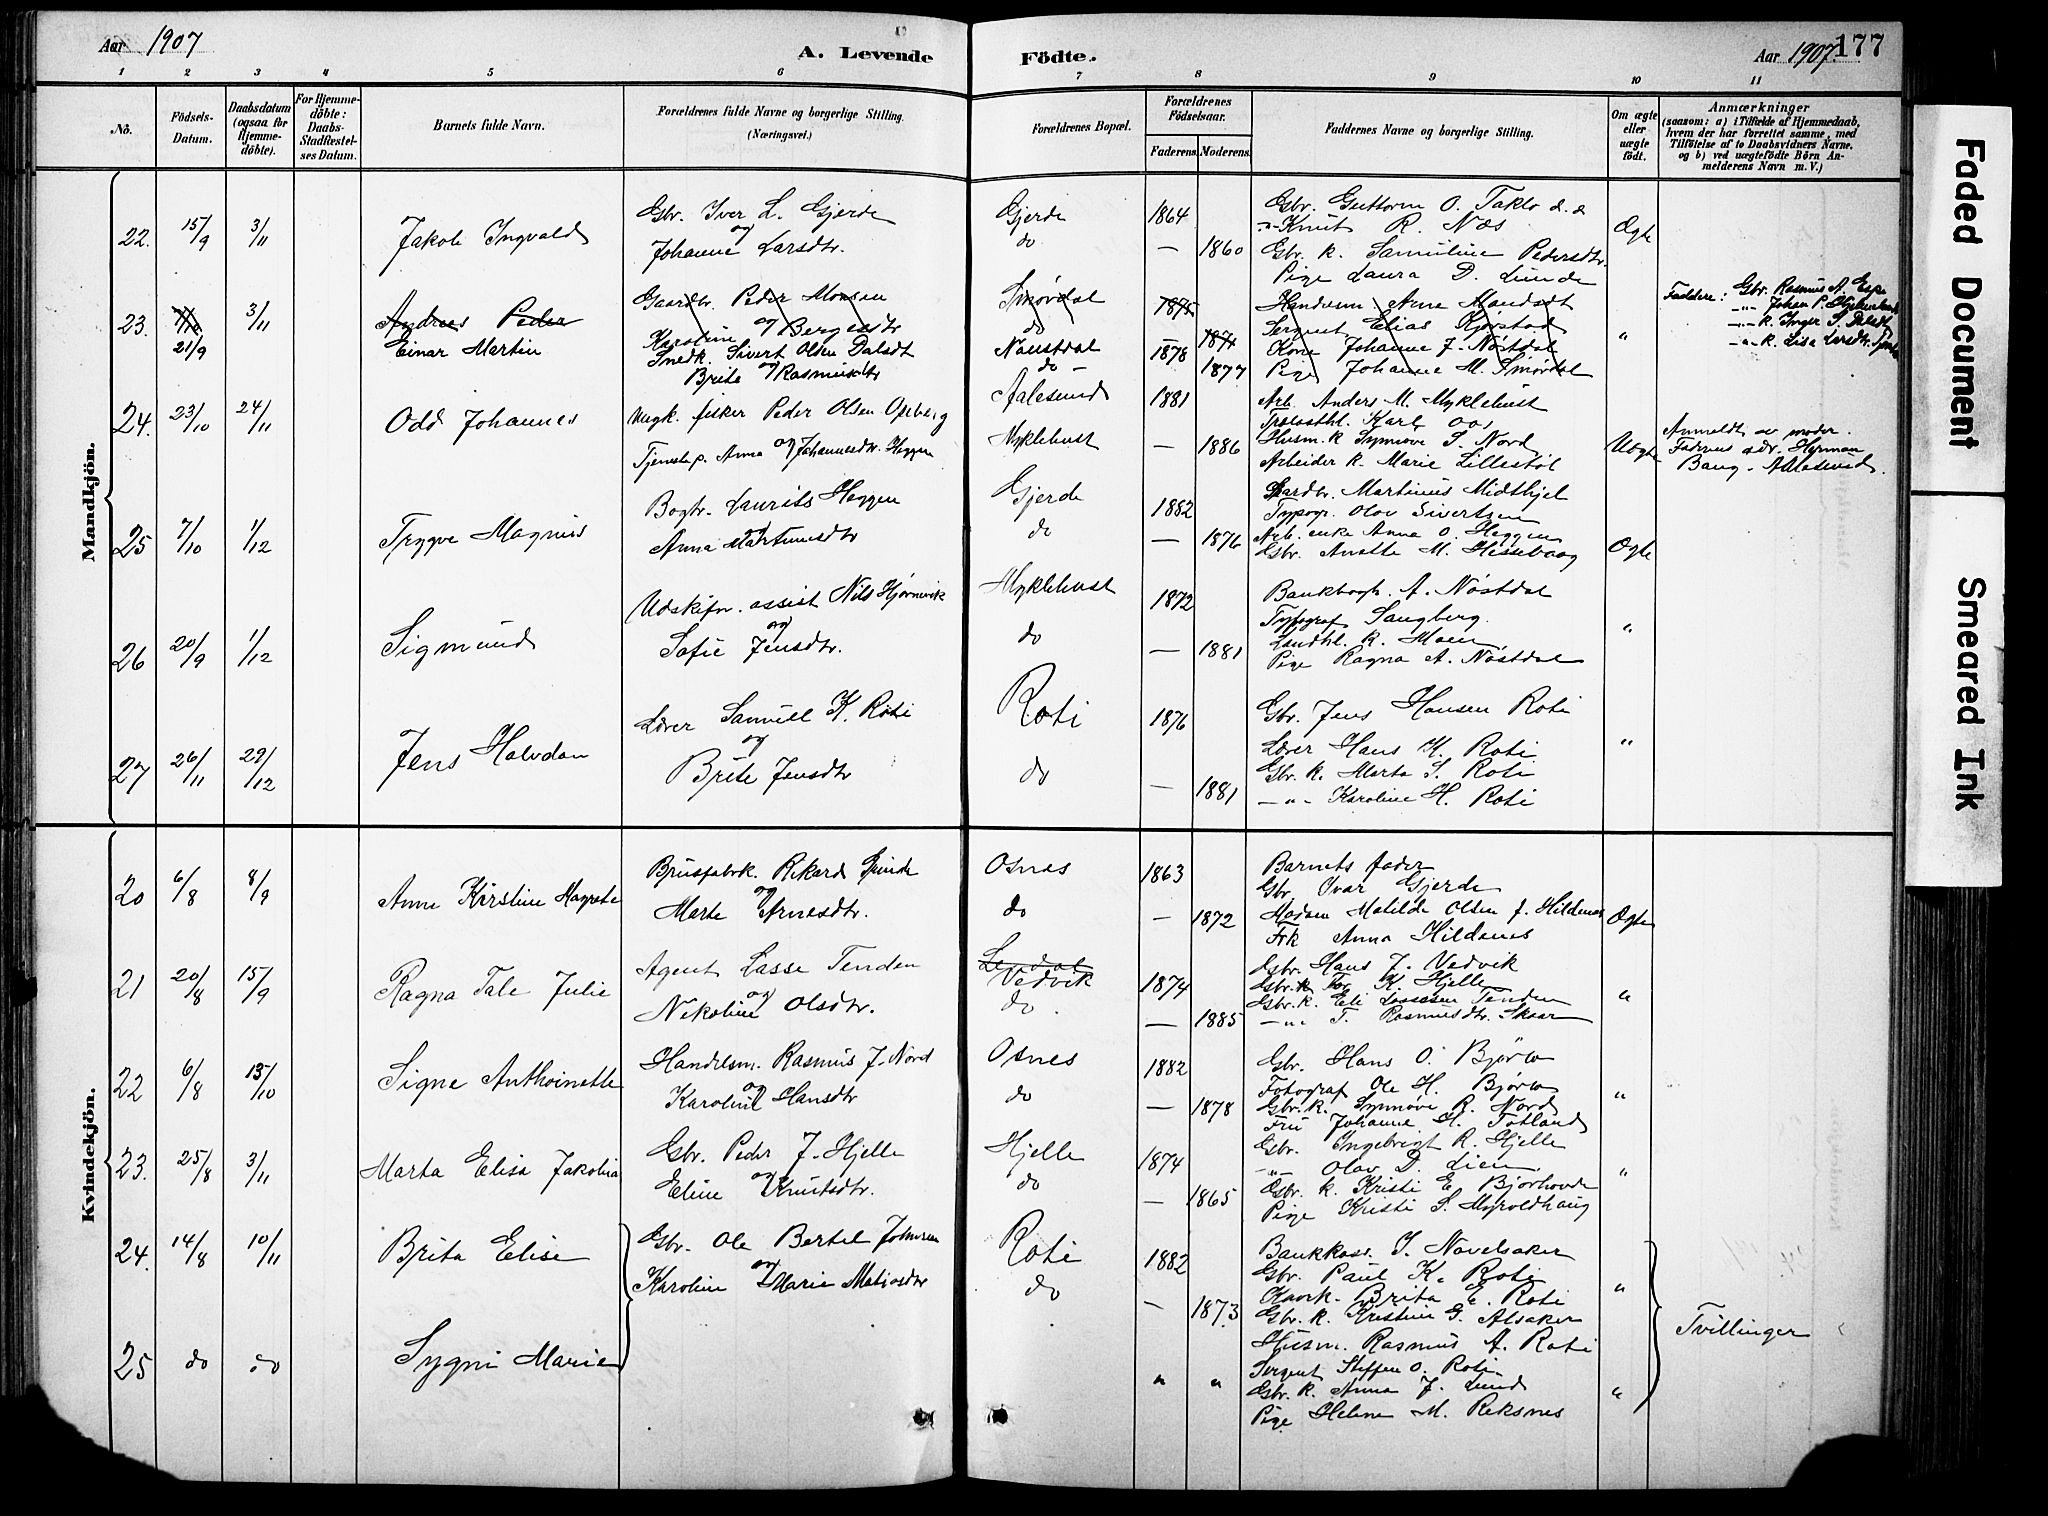 Aar 1907
A. Levende Födte.
Aar 1907. 177
1 2 3 4 5 6 7 8 9 10 11
No.
Födsels-Datum.
Daabsdatum (ogsaa for Hjemme-döbte).
For Hjemme-döbte: Daabs-Stadfæstel-ses Datum.
Barnets fulde Navn.
Forældrenes fulde Navne og borgerlige Stilling. (Næringsvei.)
Forældrenes Bopæl.
Forældrenes Födselsaar.
Faderens. Moderens.
Faddernes Navne og borgerlige Stilling.
Om ægte eller uægte födt.
Anmærkninger
(saasom: a) i Tilfælde af Hjemmedaab,
hvem der har forrettet samme, med
Tilföielse af to Daabsvidners Navne,
og b) ved uægtefödte Börn An-
melderens Navn m. V.)
Mandkjön.
22. 15/9 3/11 Jakob Ingvald
Gbr. Iver L. Gjerde
og
Johanne Larsdtr.
Gjerde 1864
do — 1860
Gbr. Guttorm O. Taklo d. æ
-"- Knut R. Nos
Gbr. k. Samuline Pedersdtr.
Pige Laura D. Lunde
Ægte
23. 3/11 Andreas Peder
21/9 Einar Martin
Gaardbr. Peder Monsen
og
Karoline Bergesdtr
Snedk. Sivert Olsen Dalsdt
Brite og Rasmusdtr
Smørdal 1875
do 1874
Naustdal 1878
do 1877
Handelsm Arne Mandsdt
Sergent Elias Kjørstad
Kone Johanne J. Nøstdal
Pige Johanne M. Smørdal
"
Faddere: Gbr. Rasmus A. Espe
-"- Johan P.
-"- k. Inger S. Dalsdt
-"- k. Lisa Larsdtr.
24. 23/10 24/11 Odd Johannes
Ungk. fisker Peder Olsen Opberg
og
Tjenestep. Anna Johannesdtr. Heggen
Aalesund 1881
Myklebust — 1886
Arb. Anders M. Myklebust
Karl Oos
Husm. k Synnøve S. Nord
Arbeider k. Marie Lillestøl
Uægte
Anmeldt av moder.
Faderens adr. Herman
Bang - Aalesund.
25 7/10 1/12 Trygve Magnus
Bogtr. Laurits Heggen
og
Anna Martinusdtr
Gjerde 1882
do — 1876
Gardbr. Martinus Midthjel
Typogr. Olav Sivertsen
Arb. enke Anna O. Heggen
Gbr. Anette M. Hessevaag
Ægte
26 20/9 1/12 Sigmund
Udskiftn. assist Nils Hjørnevik
og
Sofie Jensdtr.
Myklebust 1872
do — 1881
Bankbogh. A. Nøstdal
Typograf Sangberg.
Landhl. k. Moen
Pige Ragna A. Nøstdal
"
27 26/11 29/12 Jens Halvdan
Lærer Samuel K. Roti
og
Brite Jensdtr
Roti 1876
do — 1881
Gbr. Jens Hansen Roti
Lærer Hans K. Roti
Gbr. k. Marta S. Roti
-"- Karoline H. Roti
"
Kvindekjön.
20 6/8 8/9 Anne Kirstine Magrete
Brusfabrk. Rikard Grinde
og
Marte Arnesdtr.
Osnes 1863
do — 1872
Barnets fader
Gbr. Ivar Gjerde
Madam Matilde Olsen f. Hildenes
Frk Anna Hildenes
Ægte
21 20/8 15/9 Ragna Tale Julie
Agent Lasse Tenden
og
Nikoline Olsdtr.
Vedvik 1874
do. — 1885
Gbr. Hans J. Vedvik
Gbr. k Tor K. Hjelle
Gbr. k. Eli Lassesen Tenden
-"- T. Rasmusdtr. Skaar
"
22 6/8 13/10 Signe Anthoinette
Handelsm. Rasmus J. Nord
og
Karoline Hansdtr
Osnes 1882
do — 1878
Gbr. Hans O. Bjørlo
Fotograf Ole H. Bjørlo
Gbr. k. Synnøve R. Nord
Fru Johanne H. Totland
"
23. 25/8 3/11 Marta Elisa Jakobia
Gbr. Peder J. Hjelle
og
Eline Knutsdtr.
Hjelle 1874
do — 1865
Gbr. Ingebrigt R. Hjelle
-"- Olav D. Lien.
Gbr. k. Kristi E. Bjørhovde
Pige Kristi S. Myroldhaug
"
24. 14/8 10/11 Brita Elise
Gbr. Ole Bertel Johnsen
og
Karoline Marie Matiasdtr
Roti 1882
do — 1873
Bankkass. S. Navelsaker
Gbr. Paul K. Roti
Kaark. Brita E. Roti
Gbr. k. Kristine G. Alsaker
"
Tvillinger
25 do do Sygni Marie
" "
Husm. Rasmus A. Roti
Sergent Steffen O. Roti
Gbr. k. Anna J. Lund
Pige Helene M. Reksnes
"
Faded Document
Smeared Ink